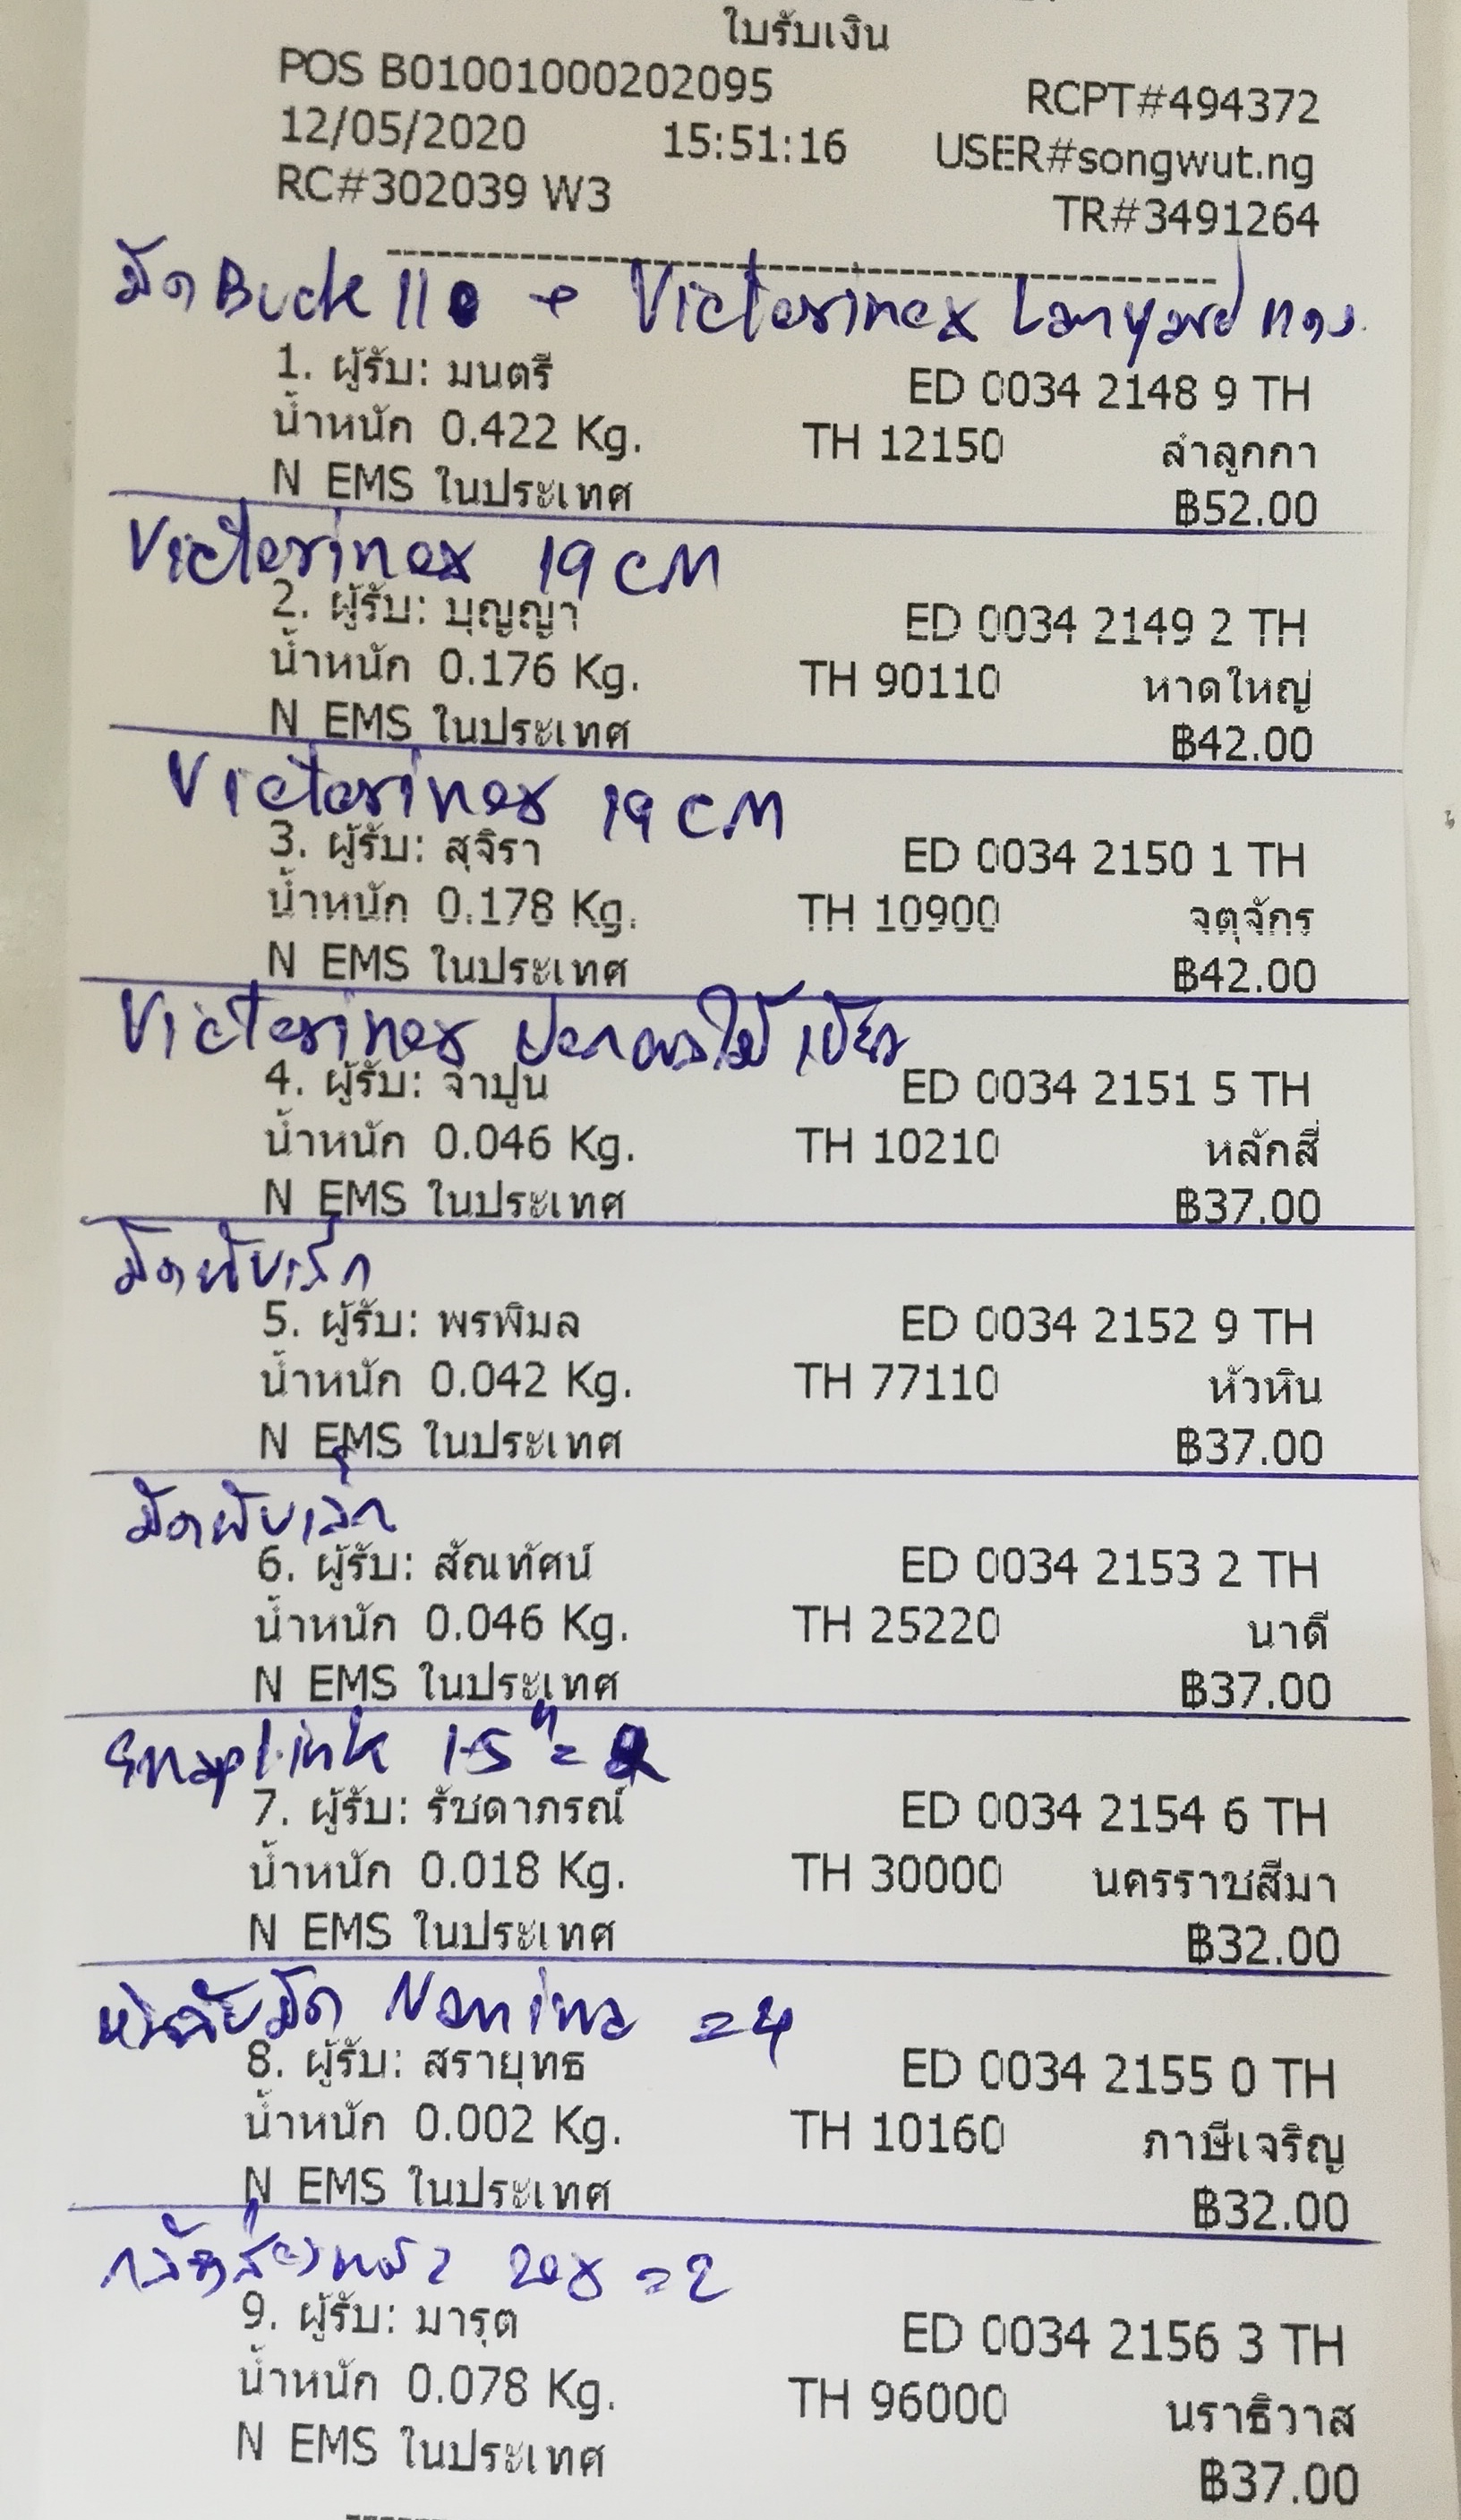 ใบรับเงิน
POS B01001000202095 RCPT#494372
12/05/2020 15:51:16 USER#songwut.ng
RC#302039 W3 TR#3491264
มีด Buck 110 + Victorinox Lanyard แดง
1. ผู้รับ: มนตรี ED 0034 2148 9 TH
น้ำหนัก 0.422 Kg. TH 12150 ลำลูกกา
N EMS ในประเทศ ฿52.00
Victorinox 19 CM
2. ผู้รับ: บุญญา ED 0034 2149 2 TH
น้ำหนัก 0.176 Kg. TH 90110 หาดใหญ่
N EMS ในประเทศ ฿42.00
Victorinox 19 CM
3. ผู้รับ: สุจิรา ED 0034 2150 1 TH
น้ำหนัก 0.178 Kg. TH 10900 จตุจักร
N EMS ในประเทศ ฿42.00
Victorinox ปอกผลไม้ เขียว
4. ผู้รับ: จำปูน ED 0034 2151 5 TH
น้ำหนัก 0.046 Kg. TH 10210 หลักสี่
N EMS ในประเทศ ฿37.00
มีดพับเล็ก
5. ผู้รับ: พรพิมล ED 0034 2152 9 TH
น้ำหนัก 0.042 Kg. TH 77110 หัวหิน
N EMS ในประเทศ ฿37.00
มีดพับเล็ก
6. ผู้รับ: สัณทัศน์ ED 0034 2153 2 TH
น้ำหนัก 0.046 Kg. TH 25220 นาดี
N EMS ในประเทศ ฿37.00
Snaplink 1.5" = 2
7. ผู้รับ: รัชดาภรณ์ ED 0034 2154 6 TH
น้ำหนัก 0.018 Kg. TH 30000 นครราชสีมา
N EMS ในประเทศ ฿32.00
มีด = 4
8. ผู้รับ: สรายุทธ ED 0034 2155 0 TH
น้ำหนัก 0.002 Kg. TH 10160 ภาษีเจริญ
N EMS ในประเทศ ฿32.00
กล้องส่องพระ 20x = 2
9. ผู้รับ: มารุต ED 0034 2156 3 TH
น้ำหนัก 0.078 Kg. TH 96000 นราธิวาส
N EMS ในประเทศ ฿37.00